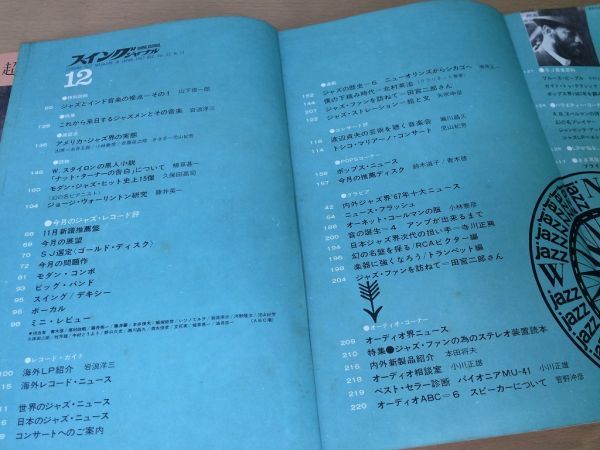 スイングジャーナル
12
●特別読物
62 ジャズとインド音楽の接点—その1 山下恒一郎
●特集
125 これから来日するジャズメンとその音楽 岩浪洋三
●座談会
アメリカ・ジャズ界の実態
●読物
W.スタイロンの黒人小説
「ナット・ターナーの告白」について 植草甚一
モダン・ジャズ・ヒット史上15傑 久保田高司
(幻の名ピアニスト)
104 ジョージ・ウォーリントン研究 藤井英一
●今月のジャズ・レコード評
68 11月新譜推薦盤
69 今月の展望
70 SJ選定〈ゴールド・ディスク〉
72 今月の問題作
81 モダン・コンボ
93 ビッグ・バンド
95 スイング/デキシー
96 ボーカル
90 ミニ・レビュー
●レコード・ガイド
100 海外LP紹介 岩浪洋三
15 海外レコード・ニュース
11 世界のジャズ・ニュース
6 日本のジャズ・ニュース
9 コンサートへのご案内
●連載
152 ジャズの歴史—6 ニューオリンズからシカゴへ
144 僕の下積み時代—北村英治
207 ジャズ・ファンを訪ねて—田宮二郎さん
122 ジャズ・ストレーション—絵と文 矢吹申彦
●コンサート評
118 渡辺貞夫の芸術を聴く音楽会 瀬川昌久
114 トシコ・マリアーノ・コンサート 児山紀芳
●POPSコーナー
156 ポップス・ニュース
157 今月の推薦ディスク 鈴木道子/青木啓
●グラビア
42 内外ジャズ界'67年十大ニュース
64 ニュース・フラッシュ
186 オーネット・コールマンの顔 小林泰彦
200 音の誕生〜4 アンプが出来るまで
194 日本ジャズ界次代の担い手〜寺川正興
196 幻の名盤を探る/RCAビクター編
198 楽器に強くなろう/トランペット編
204 ジャズ・ファンを訪ねて—田宮二郎さん
●オーディオ・コーナー
209 オーディオ界ニュース
210 特集●ジャズ・ファンの為のステレオ装置読本
216 内外新製品紹介 本田将夫
218 オーディオ相談室 小川正雄
219 ベスト・セラー診断 パイオニアMU-41 小川正雄
220 オーディオABC—6 スピーカーについて 菅野沖彦
jazz
W